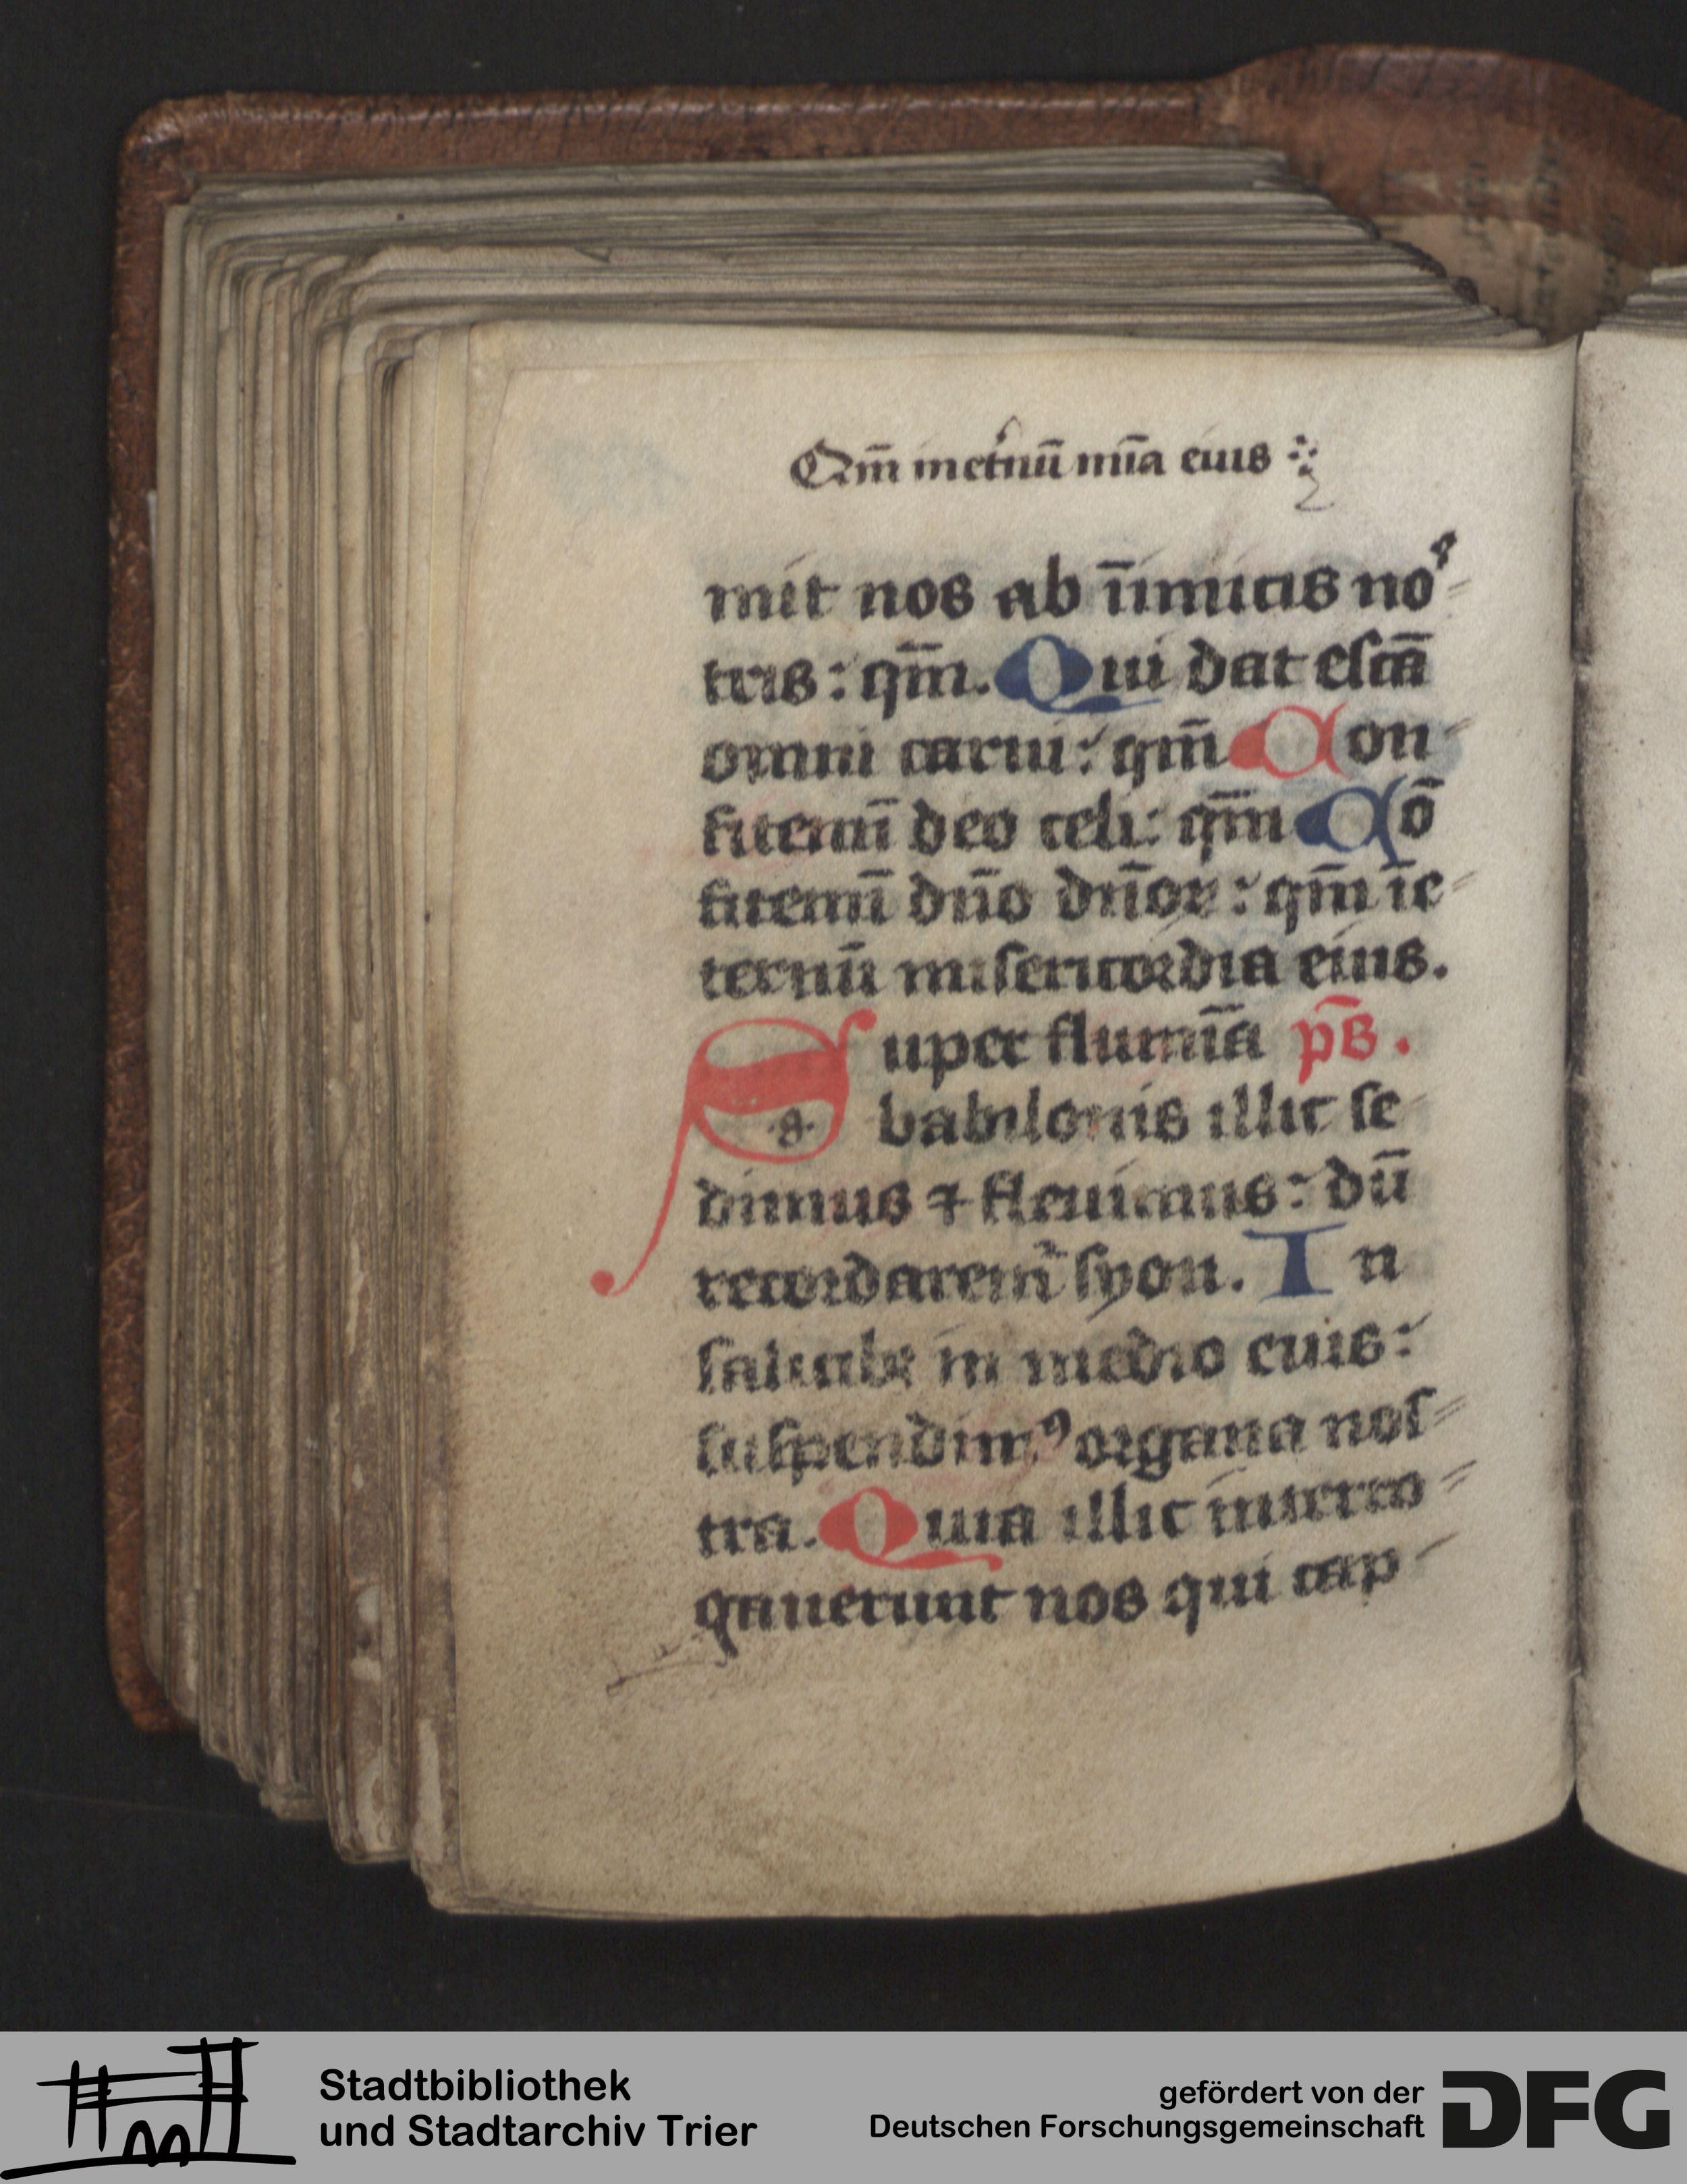 Qm̄ inet͛nū mīa eius
mit nos ab īīmicis noˢ
tris: qm̄. Qui dat escā
omni carni: qm̄ Con
fitemī deo celi: qm̄ Cō
fitemī dn̄o dn̄oꝝ: qm̄ īe
ternū misericordia eius.
Super flumīa ps̄.
.s. babilonis illic se
dimus ⁊ fleuimus: dū
recordarem̄ syon. In
salicibꝫ in medio eius:
suspendimꝰ organa nos
tra. Quia illic interro
gauerunt nos qui cap
Stadtbibliothek
und Stadtarchiv Trier
gefördert von der
Deutschen Forschungsgemeinschaft
DFG